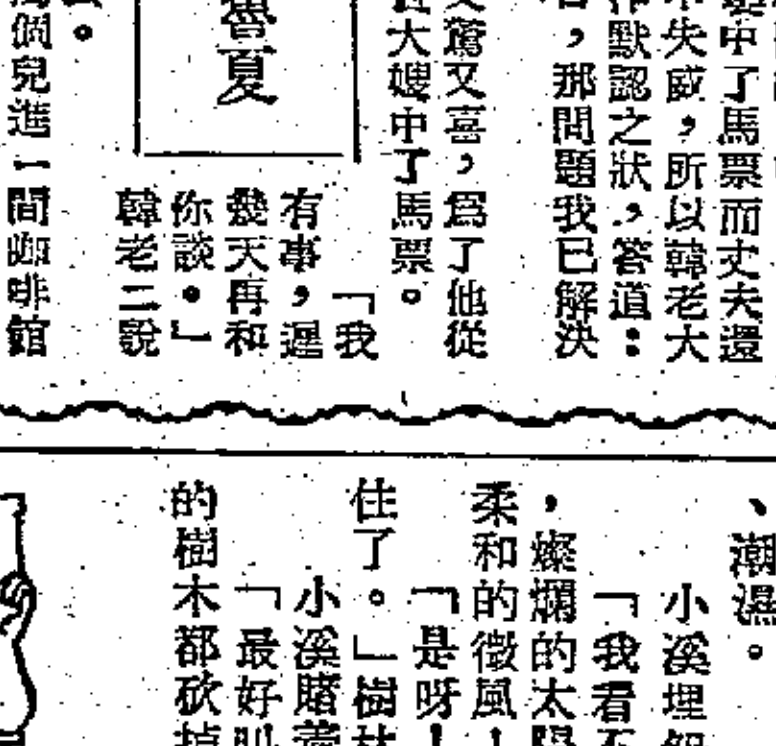 中了馬票而丈夫還
失威，所以韓老大
默認之狀，答道：
，那問題我已解決
驚又喜，爲了他從
大嫂中了馬票。
「我
有事，遲
幾天再和
你談。」
韓老二說
魯夏
。
個兒進一間咖啡館
、潮濕。
小溪埋
「我看不
，燦爛的太陽
柔和的微風！
「是呀！
住了。」樹林
小溪賭
「最好
的樹木都砍掉